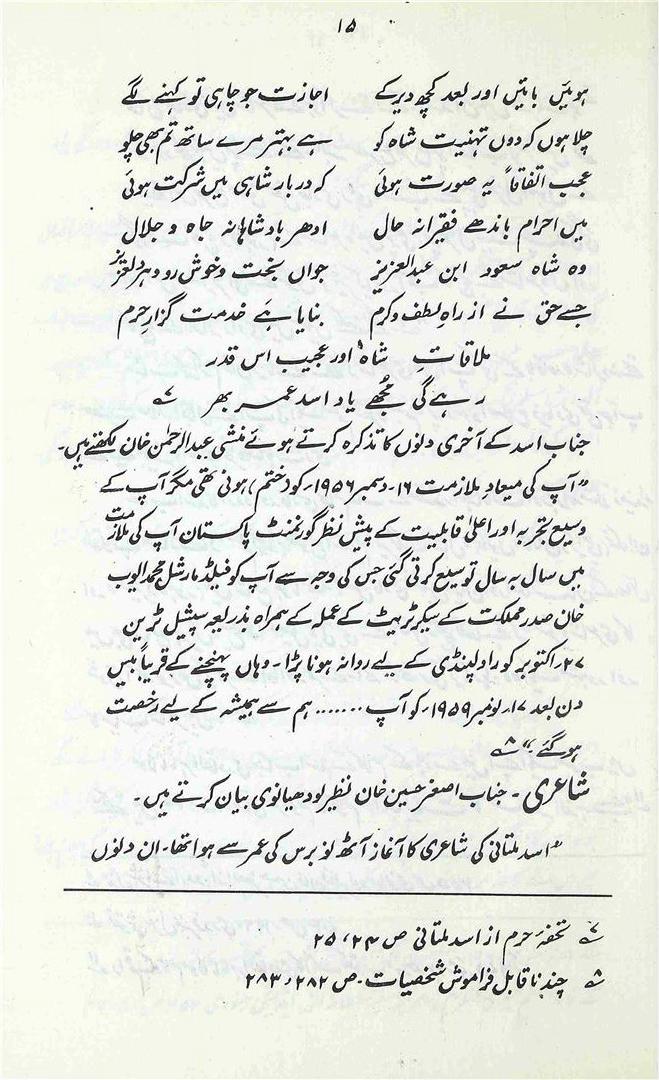 ۱۵
ہوئیں باتیں اور بعد کچھ دیر کے اجازت جو چاہی تو کہنے لگے
چلا ہوں کہ دوں تہنیت شاہ کو ہے بہتر مرے ساتھ تم بھی چلو
عجب اتفاقاً یہ صورت ہوئی کہ دربار شاہی میں شرکت ہوئی
میں احرام باندھے فقیرانہ حال ادھر بادشاہانہ جاہ و جلال
وہ شاہ سعود ابن عبدالعزیز جواں بخت و خوش رو و ہر دلعزیز
جسے حق نے از راہِ لطف و کرم بنایا ہے خدمت گزارِ حرم
ملاقاتِ شاہ اور عجیب اس قدر
رہے گی مجھے یاد اسد عمر بھر ؎۷
جناب اسد کے آخری دنوں کا تذکرہ کرتے ہوئے منشی عبدالرحمٰن خان لکھتے ہیں۔
"آپ کی میعادِ ملازمت ۱۶۔دسمبر ۱۹۵۶ء کو (ختم) ہونی تھی مگر آپ کے
وسیع تجربہ اور اعلیٰ قابلیت کے پیش نظر گورنمنٹ پاکستان آپ کی ملازمت
میں سال بہ سال توسیع کرتی گئی جس کی وجہ سے آپ کو فیلڈ مارشل محمد ایوب
خان صدر مملکت کے سیکرٹریٹ کے عملہ کے ہمراہ بذریعہ سپیشل ٹرین
۲۷؍اکتوبر کو راولپنڈی کے لیے روانہ ہونا پڑا۔ وہاں پہنچنے کے قریباً بیس
دن بعد ۱۷۔نومبر ۱۹۵۹ء کو آپ ....... ہم سے ہمیشہ کے لیے رخصت
ہو گئے" ؎۸
شاعری۔ جناب اصغر حسین خان نظیر لودھیانوی بیان کرتے ہیں۔
"اسد ملتانی کی شاعری کا آغاز آٹھ نو برس کی عمر سے ہوا تھا۔ ان دنوں
؎۷ تحفۂ حرم از اسد ملتانی ص ۲۴، ۲۵
؎۸ چند ناقابل فراموش شخصیات۔ ص ۲۸۲، ۲۸۳